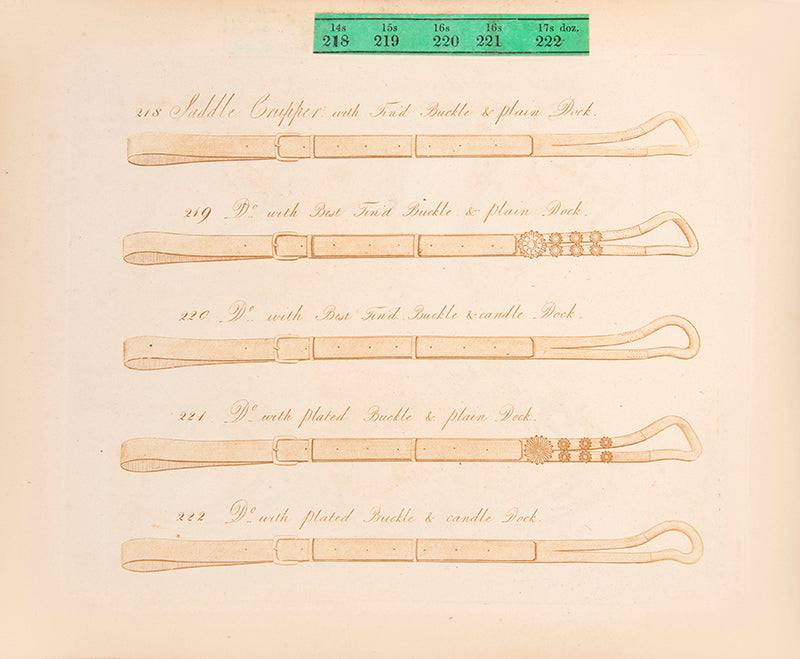 14s 15s 16s 16s 17s doz.
218 219 220 221 222
218 Saddle Crupper with Tin'd Buckle & plain Dock.
219 Do. with Best Tin'd Buckle & plain Dock.
220 Do. with Best Tin'd Buckle & candle Dock.
221 Do. with plated Buckle & plain Dock.
222 Do. with plated Buckle & candle Dock.